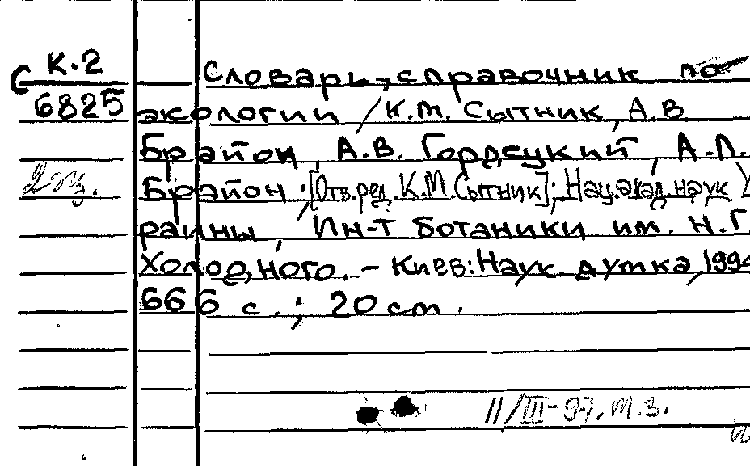 К.2
С 6825
Словарь-справочник по
экологии / К.М. Сытник, А.В.
Брайон, А.В. Гордецкий, А.П.
2 экз.
Брайон; [Отв. ред. К.М. Сытник]; Нац. акад. наук У
раины, Ин-т ботаники им. Н.Г.
Холодного. - Киев: Наук. думка, 1994
666 с.; 20 cm.
11/III-97. м.з.